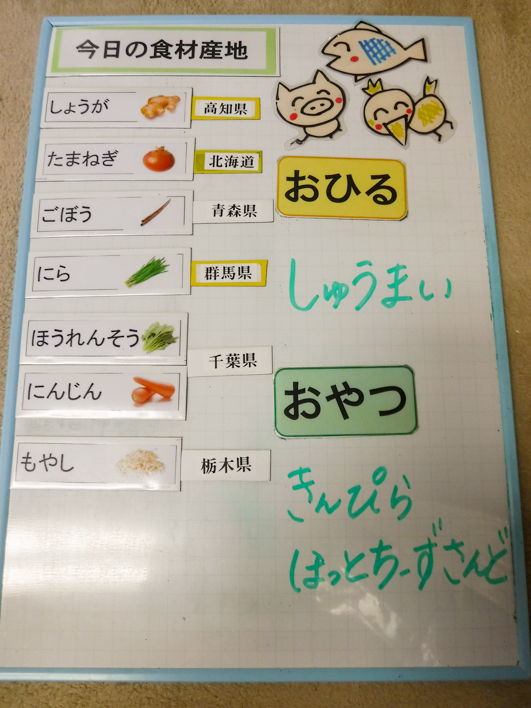 今日の食材産地
しょうが 高知県
たまねぎ 北海道
ごぼう 青森県
にら 群馬県
ほうれんそう
千葉県
にんじん
もやし 栃木県
おひる
しゅうまい
おやつ
きんぴら
はっとちーずさんど